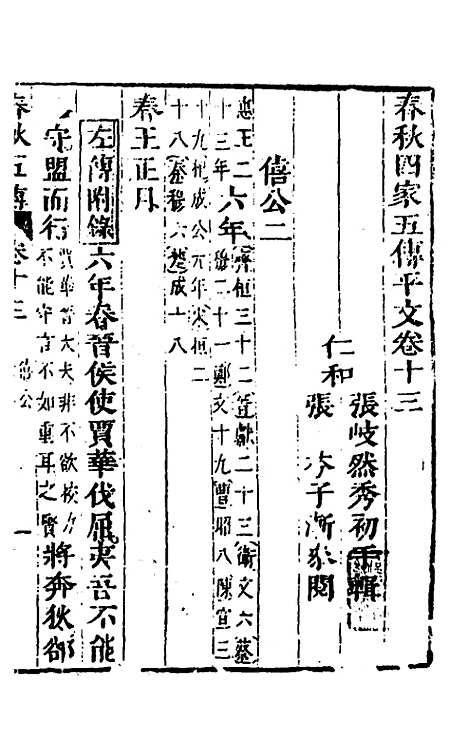 春秋四家五傳平文卷十三
仁和
張岐然秀初手輯
張 芬子漸參閱
僖公二
惠王二十三年
六年
齊桓三十二晉獻二十三衛文六蔡
穆二十一鄭文十九曹昭八陳宣三
十九杞成公元年宋桓二
十八秦穆六楚成十八
春王正月
左傳附錄六年春晉侯使賈華伐屈夷吾不能
守盟而行
賈華晉大夫非不欲校力
不能守言不如重耳之賢
將奔狄郤
春秋五傳
卷十三
僖公
一